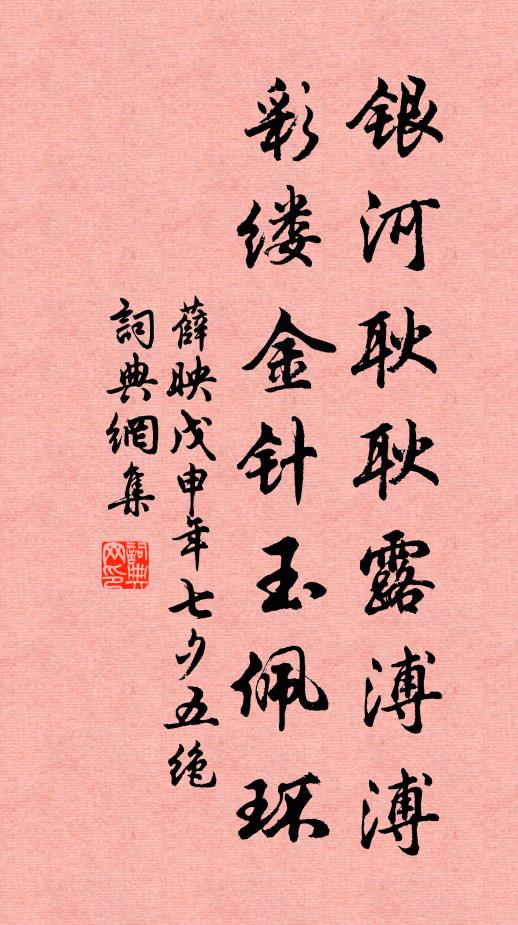 银河耿耿露溥溥
彩缕金针玉佩环
薛映戊申年七夕五绝
詞典網集
詞典网印